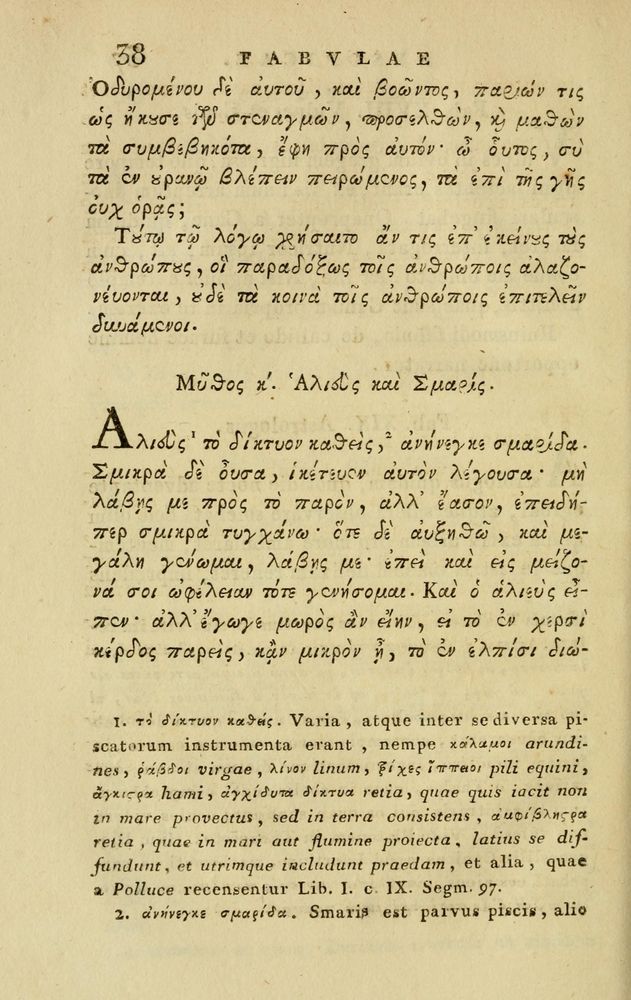 38 FABVLAE
Ὀδυρομένου δὲ ἀυτοῦ, καὶ βοῶντος, παριών τις
ὡς ἤκουσε τῶν στεναγμῶν, προσελθὼν, καὶ μαθὼν
τὰ συμβεβηκότα, ἔφη πρὸς ἀυτόν· ὦ οὗτος, σὺ
τὰ ἐν οὐρανῷ βλέπειν πειρώμενος, τὰ ἐπὶ τῆς γῆς
ουχ ὁρᾷς;
Τούτῳ τῷ λόγῳ χρήσαιτο ἄν τις ἐπ' ἐκείνους τοὺς
ἀνθρώπους, οἳ παραδόξως τοῖς ἀνθρώποις ἀλαζο-
νέυονται, οὐδὲ τὰ κοινὰ τοῖς ἀνθρώποις ἐπιτελεῖν
δυνάμενοι.
Μῦθος κ΄. Ἁλιεὺς καὶ Σμαρίς.
Ἁλιεὺς 1 τὸ δίκτυον καθεὶς, 2 ἀνήνεγκε σμαρίδα.
Σμικρὰ δὲ οὖσα, ἱκέτευεν ἀυτὸν λέγουσα· μὴ
λάβῃς με πρὸς τὸ παρὸν, ἀλλ' ἔασον, ἐπειδή-
περ σμικρὰ τυγχάνω· ὅτε δὲ ἀυξηθῶ, καὶ με-
γάλη γένωμαι, λάβῃς με· ἐπεὶ καὶ εἰς μείζο-
νά σοι ὠφέλειαν τότε γενήσομαι. Καὶ ὁ ἁλιεὺς εἶ-
πεν· ἀλλ' ἔγωγε μωρὸς ἂν εἴην, εἰ τὸ ἐν χερσὶ
κέρδος παρεὶς, κἂν μικρὸν ᾖ, τὸ ἐν ἐλπίσι διώ-
1. τὸ δίκτυον καθείς. Varia, atque inter se diversa pi-
scatorum instrumenta erant, nempe κάλαμοι arundi-
nes, ῥάβδοι virgae, λίνον linum, τρίχες ἵππειοι pili equini,
ἄγκιστρα hami, ἀγχίδυτα δίκτυα retia, quae quis iacit non
in mare provectus, sed in terra consistens, ἀμφίβληστρα
retia, quae in mari aut flumine proiecta, latius se dif-
fundunt, et utrimque includunt praedam, et alia, quae
a Polluce recensentur Lib. I. c IX. Segm. 97.
2. ἀνήνεγκε σμαρίδα. Smaris est parvus piscis, alio